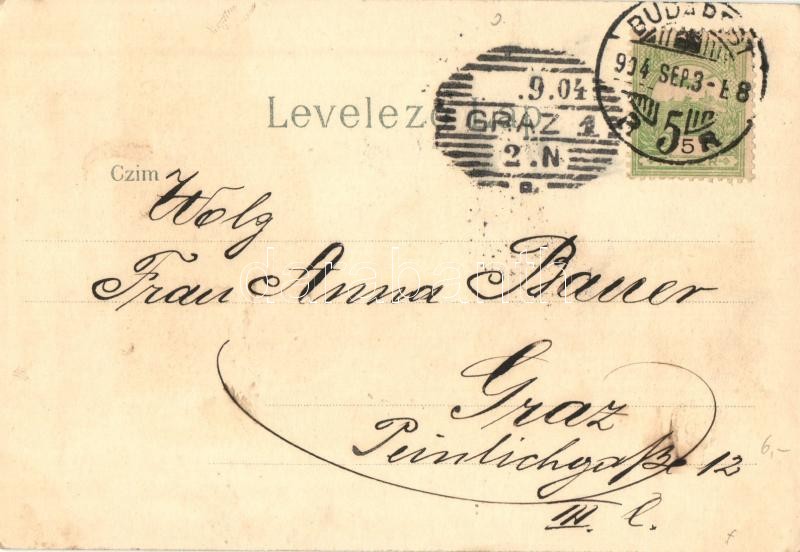 BUDAPEST
904 SEP.3-E8
5
R
.9.04
GRAZ 1
2.N
Levelező-lap
Czim
Wolg
Frau Anna Bauer
darabanth
Graz
Peinlichgaße 12
III. l.
6,-